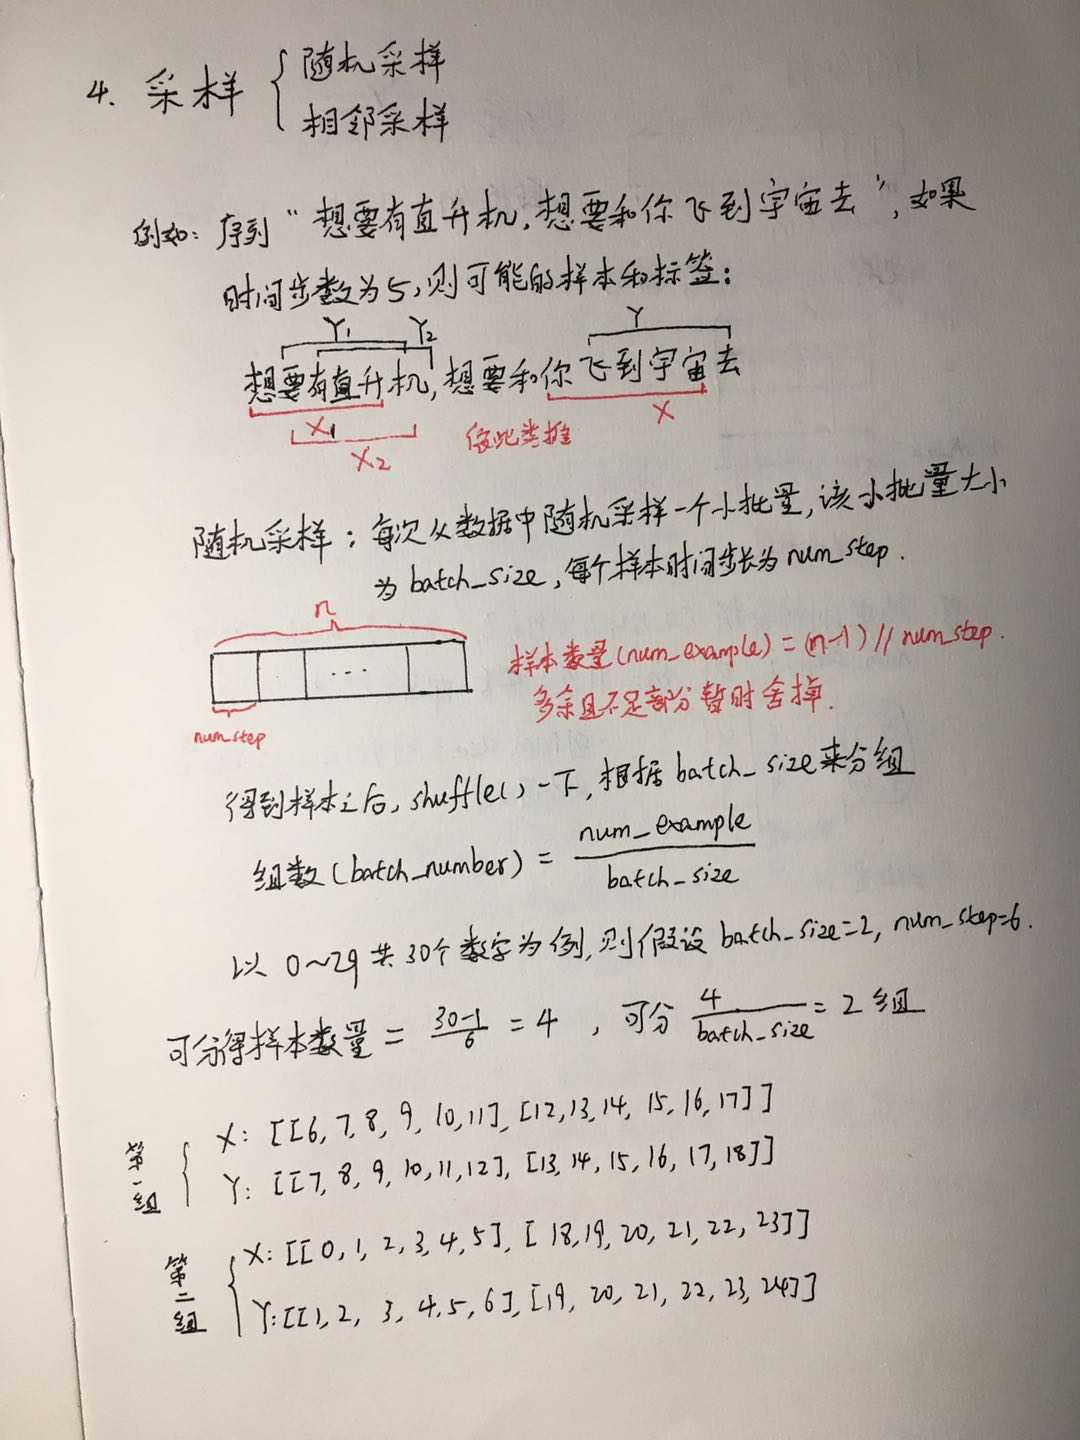 4. 采样 { 随机采样
相邻采样
例如: 序列 "想要有直升机, 想要和你飞到宇宙去", 如果
时间步数为5, 则可能的样本和标签:
Y1 Y2 Y
想要有直升机, 想要和你飞到宇宙去
X1 X2 依此类推 X
随机采样: 每次从数据中随机采样一个小批量, 该小批量大小
为 batch_size, 每个样本时间步长为 num_step.
n
...
num_step
样本数量(num_example) = (n-1) // num_step.
多余且不足部分暂时舍掉.
得到样本之后, shuffle() 一下, 根据 batch_size 来分组
组数(batch_number) = num_example / batch_size
以 0~29 共 30个数字为例, 则假设 batch_size=2, num_step=6.
可分得样本数量 = 30-1 / 6 = 4 , 可分 4 / batch_size = 2 组
第一组 { X: [[6, 7, 8, 9, 10, 11], [12, 13, 14, 15, 16, 17]]
Y: [[7, 8, 9, 10, 11, 12], [13, 14, 15, 16, 17, 18]]
第二组 { X: [[0, 1, 2, 3, 4, 5], [18, 19, 20, 21, 22, 23]]
Y: [[1, 2, 3, 4, 5, 6], [19, 20, 21, 22, 23, 24]]